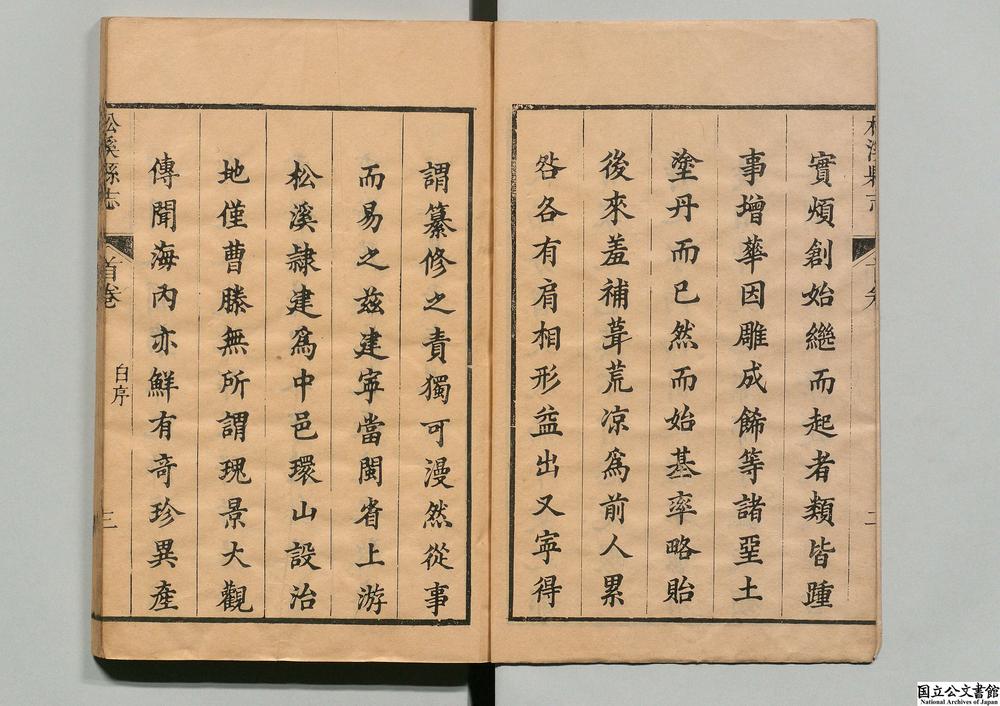 實煩創始繼而起者類皆踵
事增華因雕成餙等諸堊土
塗丹而已然而始基率略貽
後來羞補葺荒凉爲前人累
咎各有肩相形益出又寜得
謂纂修之責獨可漫然從事
而易之兹建寜當閩省上游
松溪隷建爲中邑環山設治
地僅曹滕無所謂瑰景大觀
傳聞海內亦鮮有奇珍異產
松溪縣志 首卷 自序 三
国立公文書館
National Archives of Japan